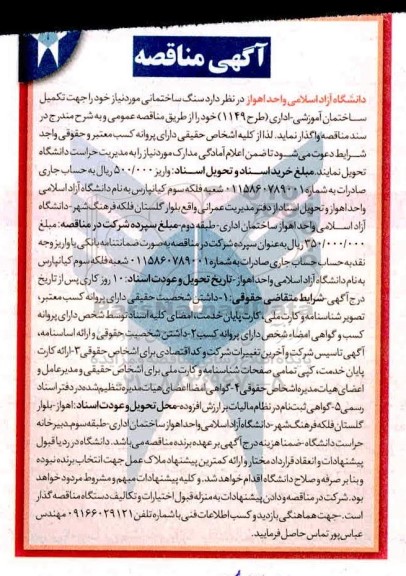 آگهی مناقصه
دانشگاه آزاد اسلامی واحد اهواز در نظر دارد سنگ ساختمانی موردنیاز خود را جهت تکمیل
ساختمان آموزشی-اداری (طرح ۱۱۴۹) خود را از طریق مناقصه عمومی و به شرح مندرج در
سند مناقصه واگذار نماید. لذا از کلیه اشخاص حقیقی دارای پروانه کسب معتبر و حقوقی واجد
شرایط دعوت می‌شود تا ضمن اعلام آمادگی مدارک مورد نیاز را به مدیریت حراست دانشگاه
تحویل نمایند. مبلغ خرید اسناد و تحویل اسناد: واریز ۵۰۰/۰۰۰ ریال به حساب جاری
صادرات به شماره ۰۱۱۵۸۶۰۷۸۹۰۰۱ شعبه فلکه سوم کیانپارس به نام دانشگاه آزاد اسلامی
واحد اهواز و تحویل اسناد از دفتر مدیریت عمرانی واقع بلوار گلستان فلکه فرهنگ شهر-دانشگاه
آزاد اسلامی واحد اهواز ساختمان اداری-طبقه دوم-مبلغ سپرده شرکت در مناقصه: مبلغ
۳۵۰/۰۰۰/۰۰۰ ریال به عنوان سپرده شرکت در مناقصه به صورت ضمانتنامه بانکی یا واریز وجه
نقد به حساب جاری صادرات به شماره ۰۱۱۵۸۶۰۷۸۹۰۰۱ شعبه فلکه سوم کیانپارس
به نام دانشگاه آزاد اسلامی واحد اهواز-تاریخ تحویل و عودت اسناد: ۱۰ روز کاری پس از تاریخ
درج آگهی-شرایط متقاضی حقوقی: ۱-داشتن شخصیت حقیقی دارای پروانه کسب معتبر،
تصویر شناسنامه و کارت ملی، کارت پایان خدمت، امضای کلیه اسناد توسط شخص دارای پروانه
کسب و گواهی امضاء شخص دارای پروانه کسب ۲-داشتن شخصیت حقوقی و ارائه اساسنامه،
آگهی تاسیس شرکت و آخرین تغییرات شرکت و کد اقتصادی برای اشخاص حقوقی ۳-ارائه کارت
پایان خدمت، کپی تمامی صفحات شناسنامه و کارت ملی برای اشخاص حقیقی و مدیرعامل و
اعضای هیات مدیره اشخاص حقوقی ۴-گواهی امضا اعضای هیات مدیره تنظیم شده در دفتر اسناد
رسمی ۵-گواهی ثبت نام در نظام مالیات بر ارزش افزوده-محل تحویل و عودت اسناد: اهواز-بلوار
گلستان فلکه فرهنگ شهر-دانشگاه آزاد اسلامی واحد اهواز ساختمان اداری-طبقه سوم دبیرخانه
حراست دانشگاه-ضمنا هزینه درج آگهی بر عهده برنده مناقصه می‌باشد. دانشگاه در رد یا قبول
پیشنهادات و انعقاد قرارداد مختار و ارائه کمترین پیشنهاد ملاک عمل جهت انتخاب برنده نبوده
و بنا بر صرفه و صلاح دانشگاه اقدام خواهد شد. و کلیه پیشنهادات مبهم و مشروط مردود خواهد
بود. شرکت در مناقصه و دادن پیشنهادات به منزله قبول اختیارات و تکالیف دستگاه مناقصه گذار
است.-جهت هماهنگی بازدید و کسب اطلاعات فنی با شماره تلفن ۰۹۱۶۶۰۲۹۱۲۱ مهندس
عباس پور تماس حاصل فرمایید.